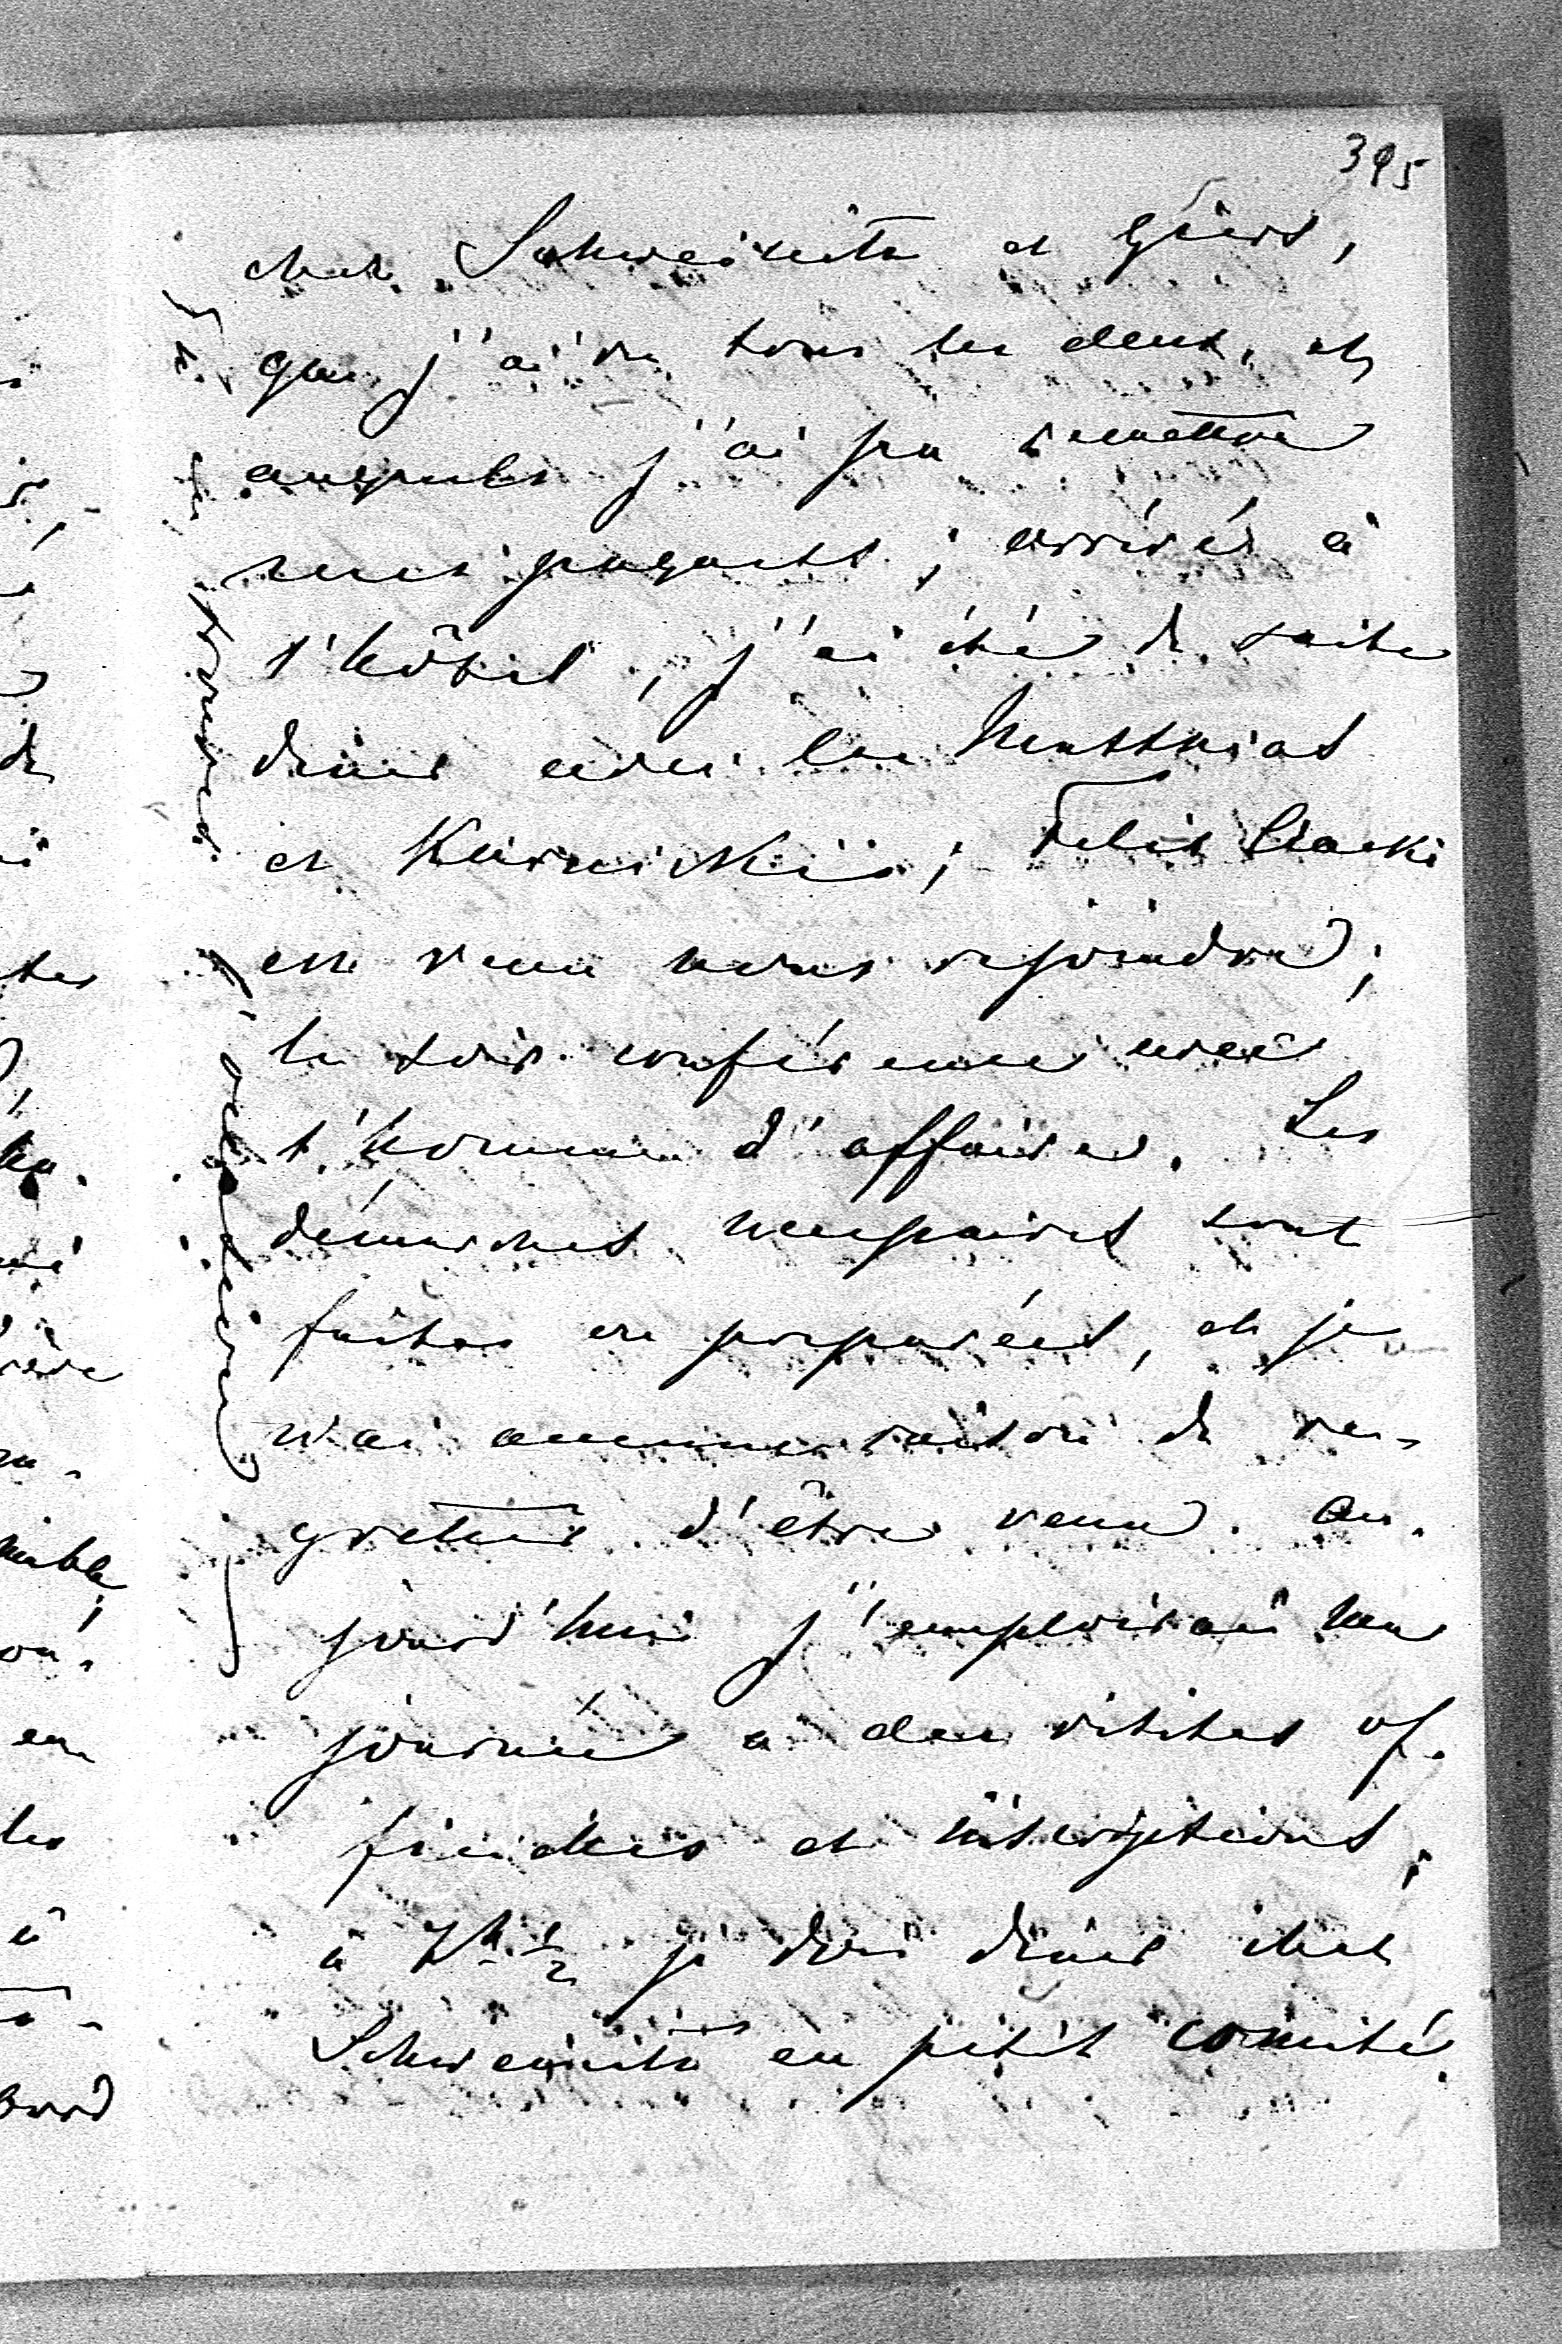 395
chez Schweinitz et Giers,
que j'ai vu tous les deux, et
auxquels j'ai pu remettre
mes paquets; arrivé à
l'hôtel, j'ai été de suite
diner avec les
et Karnicki; Felix Czacki
est venu nous rejoindre;
le soir conférence avec
l'homme d'affaires. Les
démarches necessaires sont
faites ou preparées, et je
n'ai aucune raison de re-
gretter d'être venu. Au-
jourd'hui j'emploirai ma
journée a des visites of-
ficielles et inscriptions;
à 7h ½ je dois diner chez
Schweinitz en petit comité